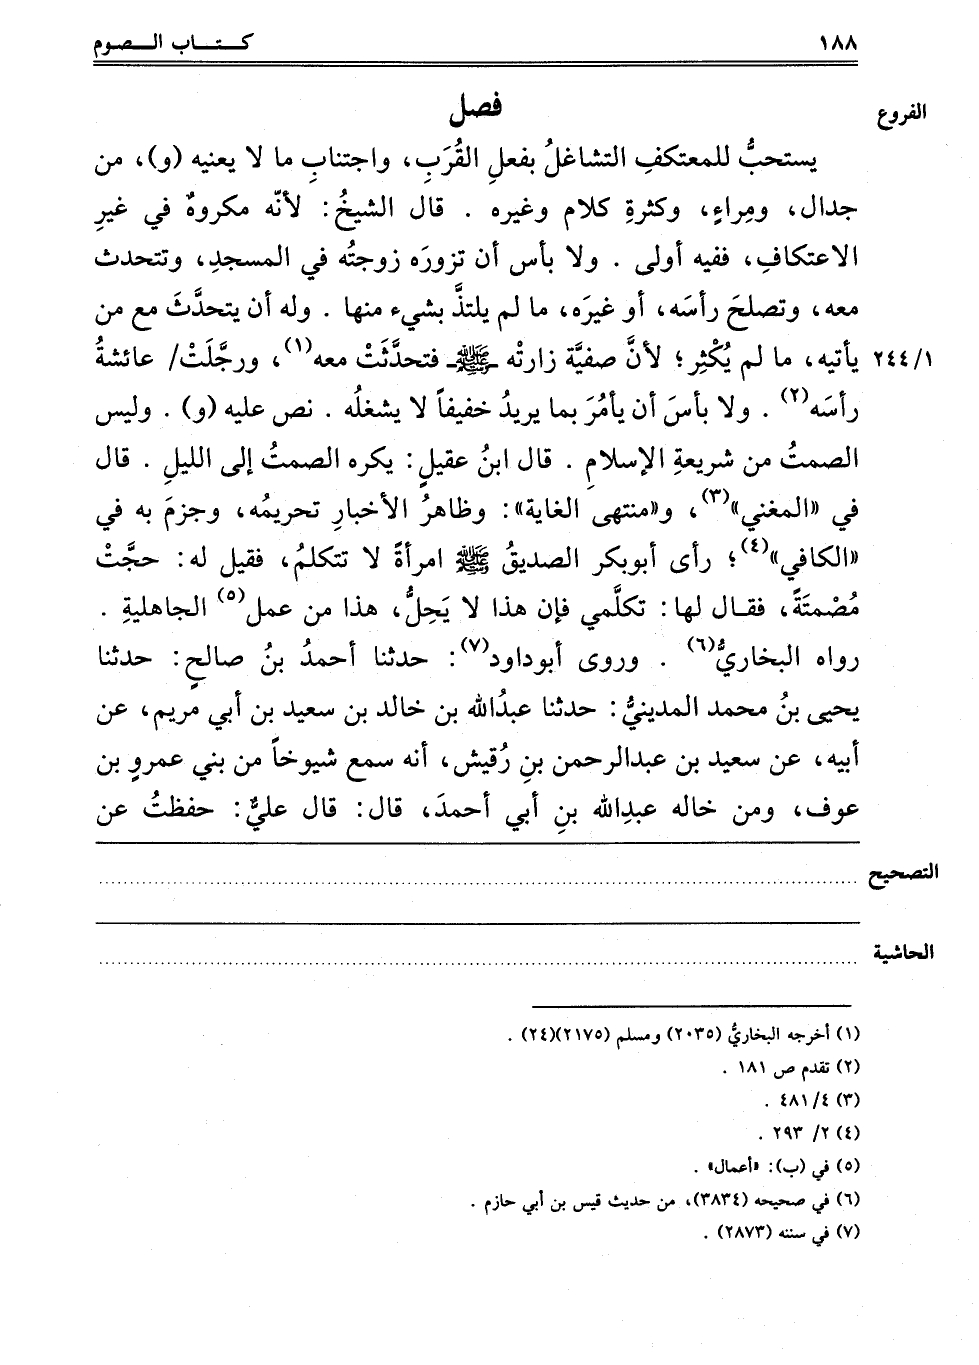 ١٨٨ كـتـــاب الـــصوم
الفروع
فصل
يستحبُّ للمعتكفِ التشاغلُ بفعلِ القُرَبِ، واجتنابِ ما لا يعنيه (و)، من
جدال، ومِراءٍ، وكثرةِ كلام وغيره . قال الشيخُ: لأنّه مكروهٌ في غيرِ
الاعتكافِ، ففيه أولى . ولا بأس أن تزورَه زوجتُه في المسجدِ، وتتحدث
معه، وتصلحَ رأسَه، أو غيرَه، ما لم يلتذَّ بشيء منها . وله أن يتحدَّثَ مع من
٢٤٤/١ يأتيه، ما لم يُكْثِر؛ لأنَّ صفيَّة زارتْه ـﷺـ فتحدَّثَتْ معه(١)، ورجَّلَتْ/ عائشةُ
رأسَه(٢) . ولا بأسَ أن يأمُرَ بما يريدُ خفيفاً لا يشغلُه . نص عليه (و) . وليس
الصمتُ من شريعةِ الإسلامِ . قال ابنُ عقيلٍ: يكره الصمتُ إلى الليلِ . قال
في «المغني»(٣)، و«منتهى الغاية»: وظاهرُ الأخبارِ تحريمُه، وجزمَ به في
«الكافي»(٤)؛ رأى أبوبكر الصديقُ ﷺ امرأةً لا تتكلمُ، فقيل له: حجَّتْ
مُصْمتَةً، فقـال لها: تكلَّمي فإن هذا لا يَحِلُّ، هذا من عمل(٥) الجاهليةِ .
رواه البخاريُّ(٦) . وروى أبوداود(٧): حدثنا أحمدُ بنُ صالحٍ: حدثنا
يحيى بنُ محمد المدينيُّ: حدثنا عبدُالله بن خالد بن سعيد بن أبي مريم، عن
أبيه، عن سعيد بن عبدالرحمن بنِ رُقيش، أنه سمع شيوخاً من بني عمروِ بن
عوف، ومن خاله عبدِالله بنِ أبي أحمدَ، قال: قال عليٌّ: حفظتُ عن
التصحيح
الحاشية
(١) أخرجه البخاريُّ (٢٠٣٥) ومسلم (٢١٧٥)(٢٤) .
(٢) تقدم ص ١٨١ .
(٣) ٤/ ٤٨١ .
(٤) ٢/ ٢٩٣ .
(٥) في (ب): «أعمال» .
(٦) في صحيحه (٣٨٣٤)، من حديث قيس بن أبي حازم .
(٧) في سننه (٢٨٧٣) .